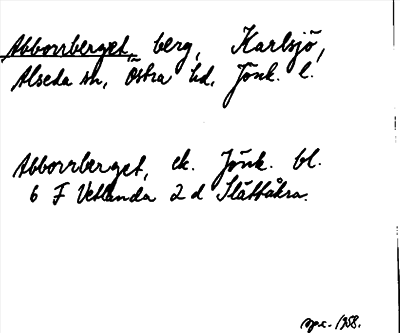 Abborrberget, berg, Karlsjö,
Alseda sn, Östra hd, Jönk. l.
Abborrberget, ek. Jönk. bl.
6 F Vetlanda 2 d Slättåkra.
1958.